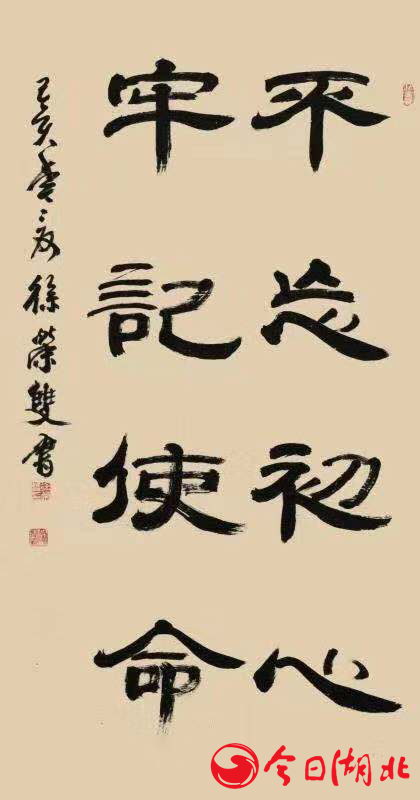 不忘初心
牢記使命
己亥季夏徐榮雙書
今日湖北